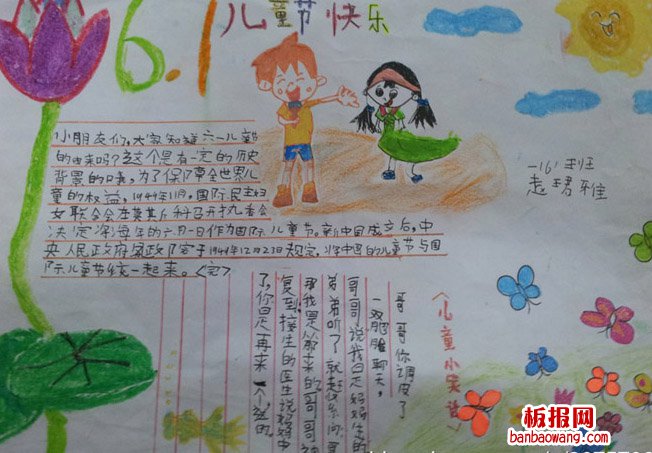 6.1 儿童节快乐
小朋友们,大家知道六一儿童节
的由来吗?这个是有一定的历史
背景的哦,为了保障全世界儿
童的权益,1949年11月,国际民主妇
女联合会在莫其斯科召开执委会
决定每年的六月一日作为国际儿童节。新中国成立后,中
央人民政府家政院客于1949年12月23日规定,将中国的儿童节与国
际儿童节统一起来。<完>
一(6)班
赵珺雅
<儿童小笑话>
哥哥你调皮了
一双胞胎聊天,
哥哥说我是妈妈生的
弟弟听了就
那我是哪来的哥哥
复到接生的医生说妈妈中
了,你是再来一个送的
板报网
banbaowang.com